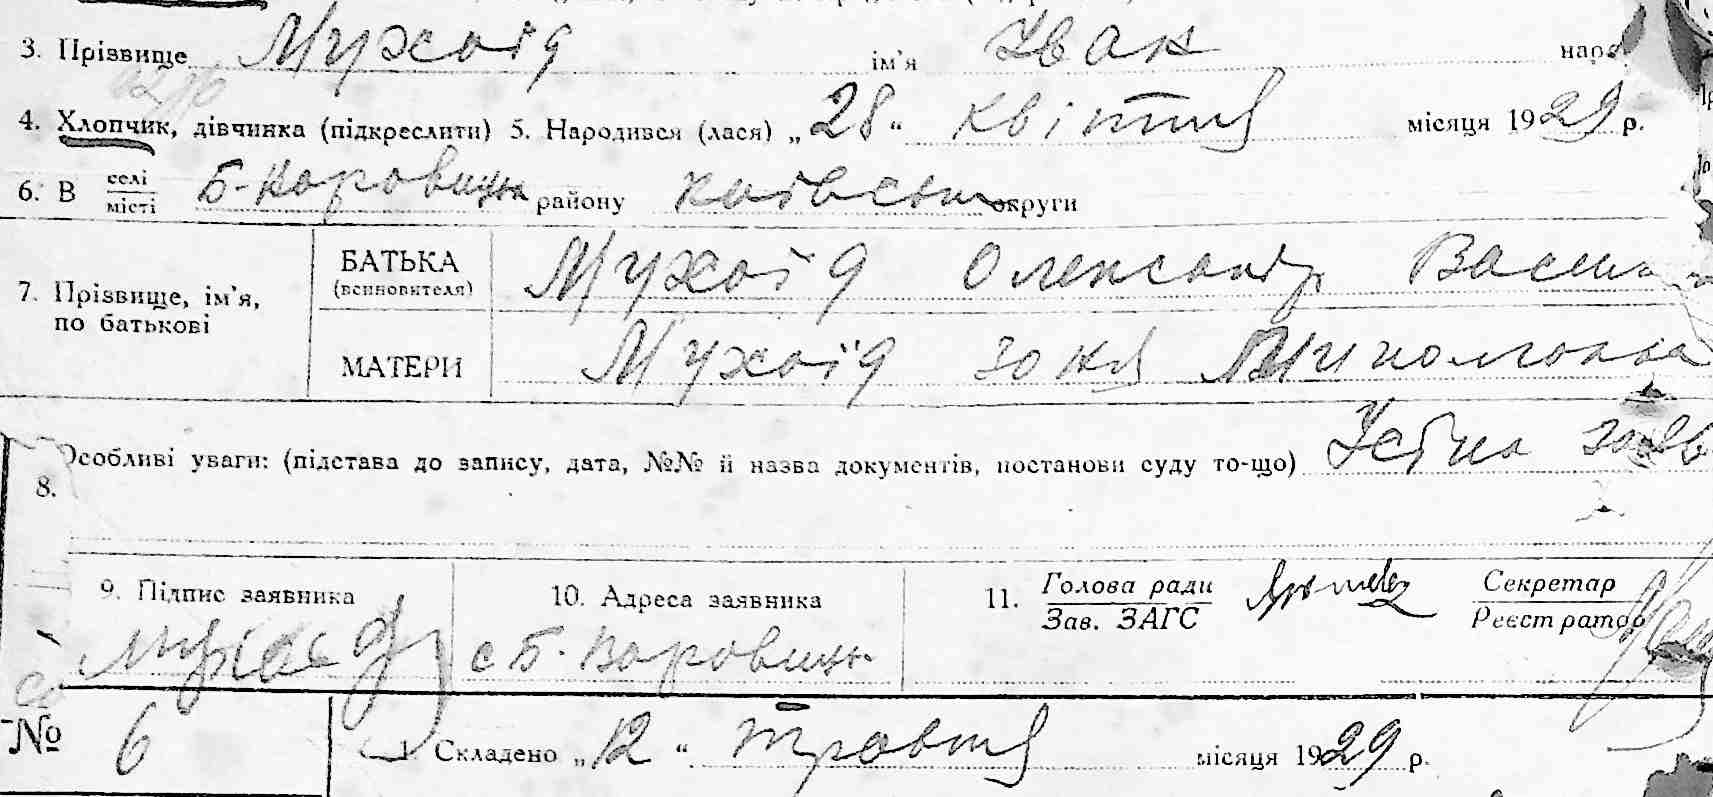 3. Прізвище Мухоїд ім'я Іван наро
4. Хлопчик, дівчинка (підкреслити) 5. Народився (лася) „28“ квітня місяця 1929 р.
6. В селі/місті Б-Каровицьк району Київськ округи
7. Прізвище, ім'я, по батькові
БАТЬКА (всиновителя) Мухоїд Олександр Васи
МАТЕРИ Мухоїд
8. Особливі уваги: (підстава до запису, дата, №№ й назва документів, постанови суду то-що) Устна заяв
9. Підпис заявника
10. Адреса заявника
11. Голова ради Секретар
Зав. ЗАГС Реєстратор
Мухоїд с Б.
№ 6 Складено „12“ травня місяця 1929 р.